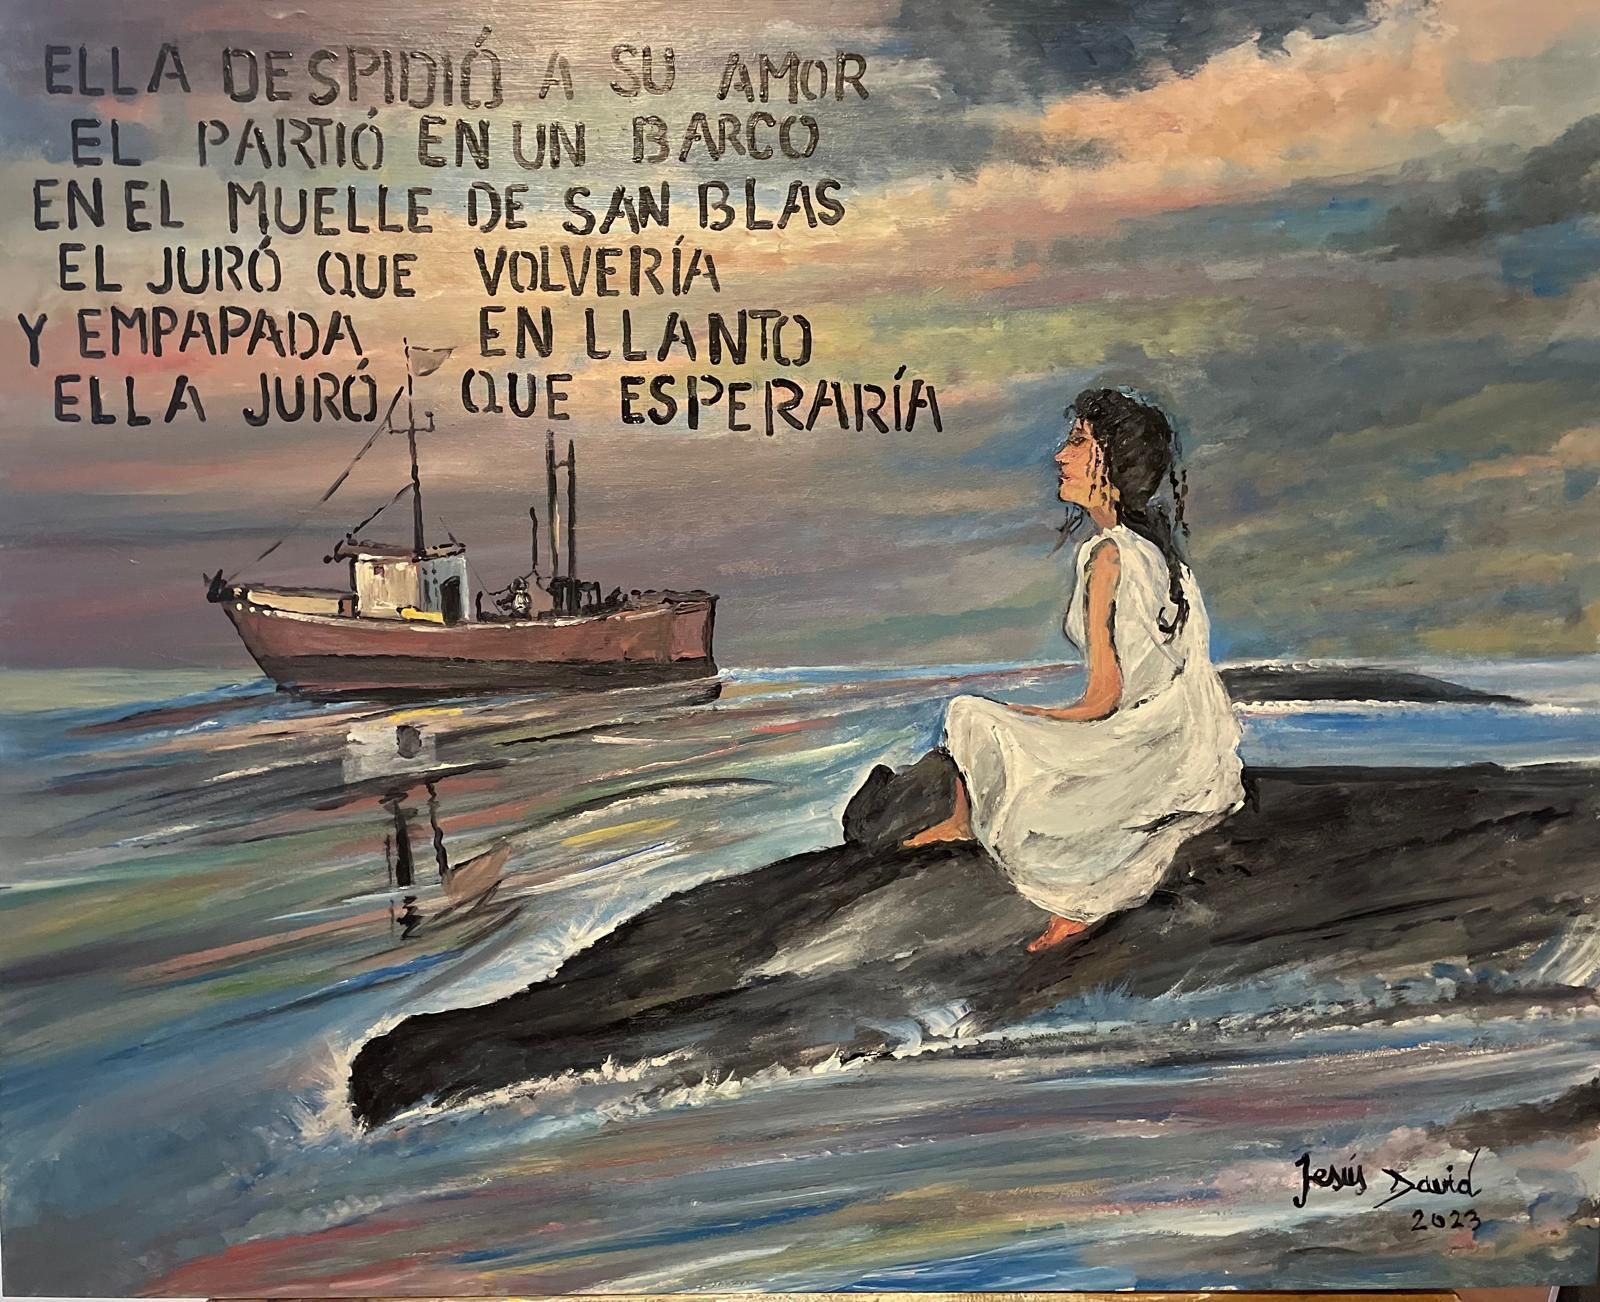 ELLA DESPIDIÓ A SU AMOR
EL PARTIÓ EN UN BARCO
EN EL MUELLE DE SAN BLAS
EL JURÓ QUE VOLVERÍA
Y EMPAPADA EN LLANTO
ELLA JURÓ QUE ESPERARÍA
Jesús David
2023